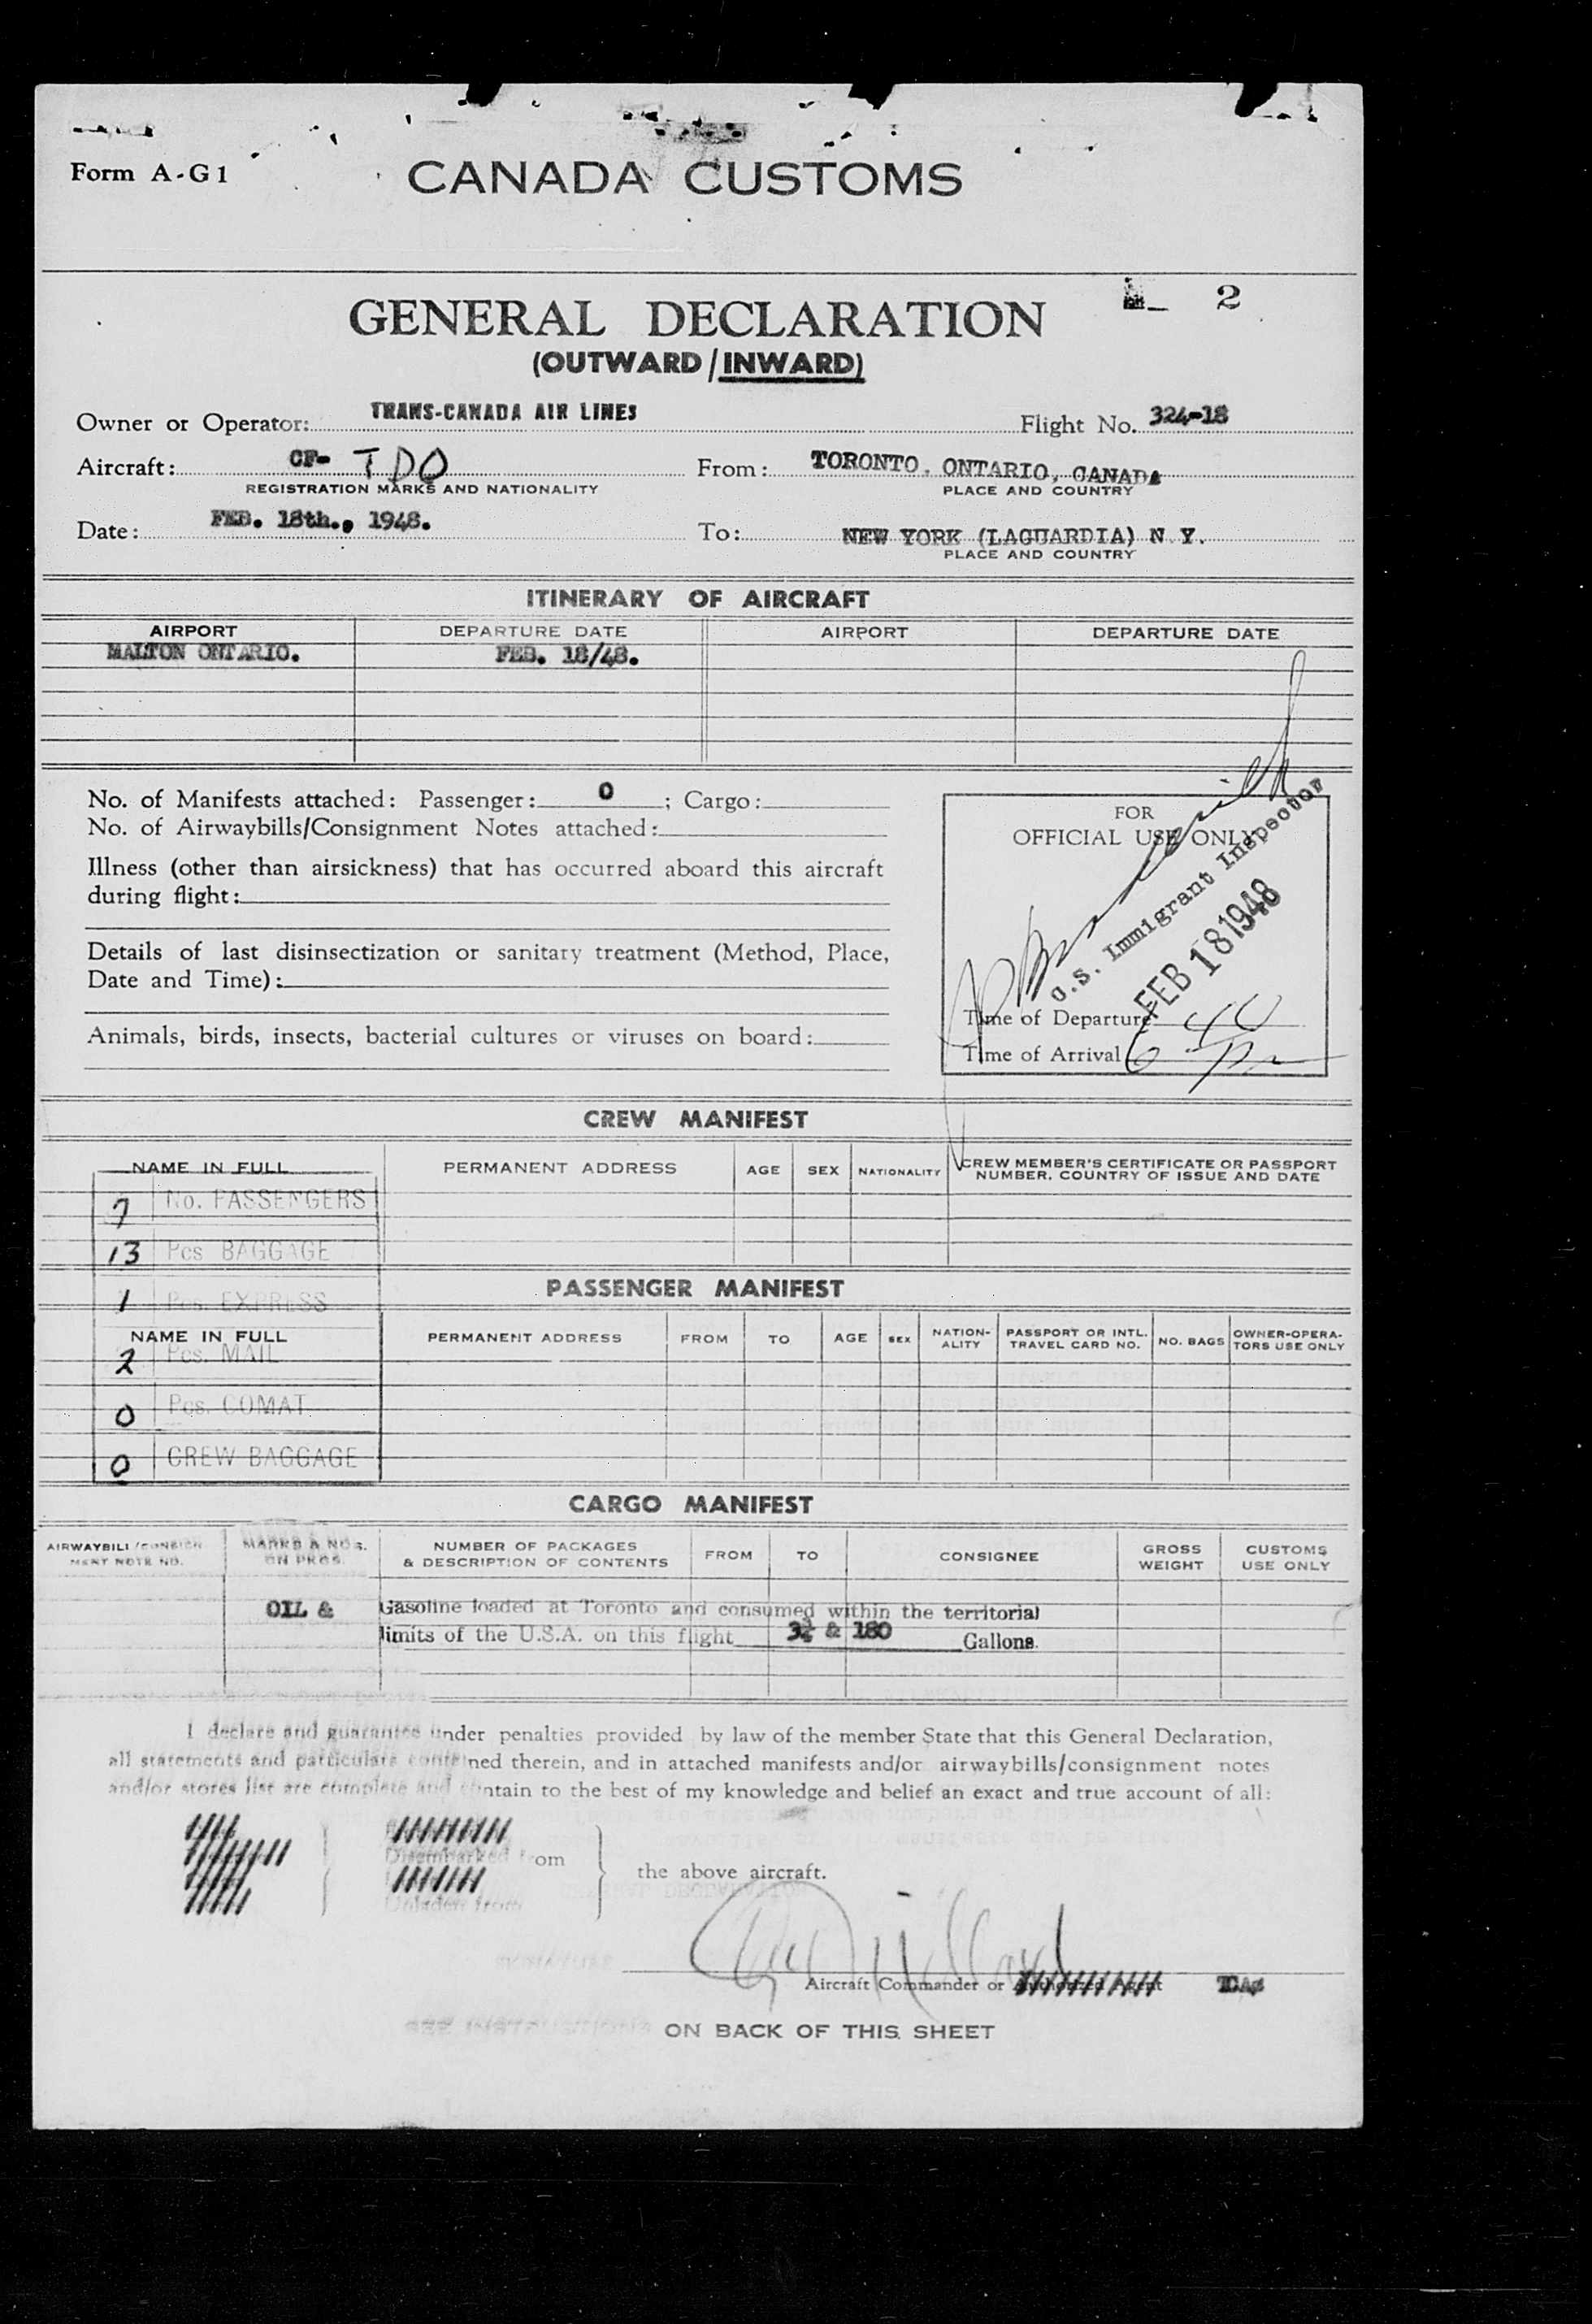 Form A-G1
CANADA CUSTOMS
2
GENERAL DECLARATION
(OUTWARD/INWARD)
Owner or Operator: TRANS-CANADA AIR LINES Flight No. 324-18
Aircraft: CF- TDO From: TORONTO, ONTARIO, CANADA
REGISTRATION MARKS AND NATIONALITY PLACE AND COUNTRY
Date: FEB. 18th., 1948. To: NEW YORK (LAGUARDIA) N Y.
PLACE AND COUNTRY
ITINERARY OF AIRCRAFT
AIRPORT DEPARTURE DATE AIRPORT DEPARTURE DATE
MALTON ONTARIO. FEB. 18/48.
No. of Manifests attached: Passenger: 0 ; Cargo:
No. of Airwaybills/Consignment Notes attached:
Illness (other than airsickness) that has occurred aboard this aircraft
during flight:
Details of last disinsectization or sanitary treatment (Method, Place,
Date and Time):
Animals, birds, insects, bacterial cultures or viruses on board:
FOR
OFFICIAL USE ONLY
U.S. Immigrant Inspector
FEB 18 1948
Time of Departure
Time of Arrival 6 40 Pm
CREW MANIFEST
NAME IN FULL PERMANENT ADDRESS AGE SEX NATIONALITY CREW MEMBER'S CERTIFICATE OR PASSPORT
NUMBER, COUNTRY OF ISSUE AND DATE
7 No. PASSENGERS
13 Pcs BAGGAGE
PASSENGER MANIFEST
1 Pcs. EXPRESS
NAME IN FULL PERMANENT ADDRESS FROM TO AGE SEX NATION-
ALITY PASSPORT OR INTL.
TRAVEL CARD NO. NO. BAGS OWNER-OPERA-
TORS USE ONLY
2 Pcs. MAIL
0 Pcs. COMAT
0 CREW BAGGAGE
CARGO MANIFEST
AIRWAYBILL/CONSIGN
MENT NOTE NO. MARKS & NOS.
ON PKGS. NUMBER OF PACKAGES
& DESCRIPTION OF CONTENTS FROM TO CONSIGNEE GROSS
WEIGHT CUSTOMS
USE ONLY
OIL & Gasoline loaded at Toronto and consumed within the territorial
limits of the U.S.A. on this flight & 180 Gallons.
I declare and guarantee under penalties provided by law of the member State that this General Declaration,
all statements and particulars contained therein, and in attached manifests and/or airwaybills/consignment notes
and/or stores list are complete and contain to the best of my knowledge and belief an exact and true account of all:
Disembarked from
Unladen from
the above aircraft.
Aircraft Commander or Authorized Agent TCA
SEE INSTRUCTIONS ON BACK OF THIS SHEET